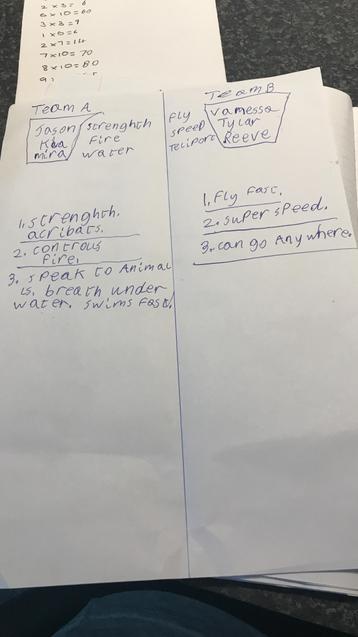 2 x 3 = 6
6 x 10 = 60
3 x 3 = 9
2 x 7 = 14
7 x 10 = 70
8 x 10 = 80
Team A
Jason
Kia
mira
strenghth
Fire
water
1. strenghth.
acribats.
2. controus
Fire.
3. speak to Animal
is. breath under
water. swims Fast.
Team B
Fly
speed
Teliport
Vanessa
Tylar
Reeve
1. Fly Fast.
2. super speed.
3. can go Anywhere.